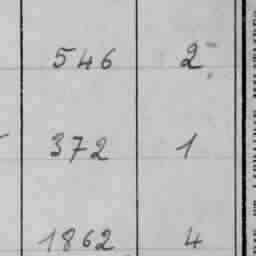 546 2
372 1
1862 4